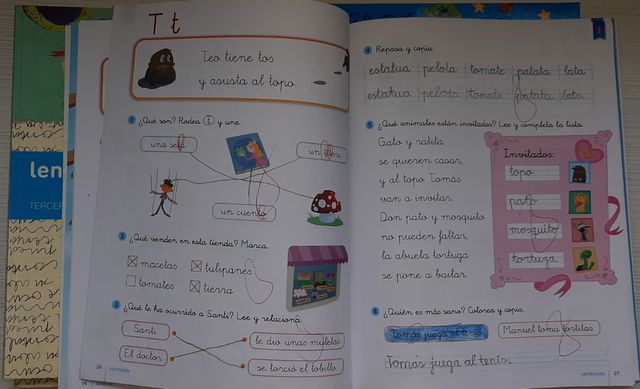 T t
Teo tiene tos
y asusta al topo.
1 ¿Qué son? Rodea t y une.
una seta
un títere
un cuento
2 ¿Qué venden en esta tienda? Marca.
macetas
tulipanes
tomates
tierra
3 ¿Qué le ha ocurrido a Santi? Lee y relaciona.
Santi
le dio unas muletas
El doctor
se torció el tobillo
26
len
TERCER
1
4 Repasa y copia.
estatua pelota tomate patata lata
estatua pelota tomate patata lata
5 ¿Qué animales están invitados? Lee y completa la lista.
Gato y ratita
se quieren casar,
y al topo Tomás
van a invitar.
Don pato y mosquito
no pueden faltar,
la abuela tortuga
se pone a bailar.
Invitados:
topo
pato
mosquito
tortuga
6 ¿Quién es más sano? Colorea y copia.
Tomás juega al tenis.
Manuel toma tortitas
Tomás juega al tenis.
27